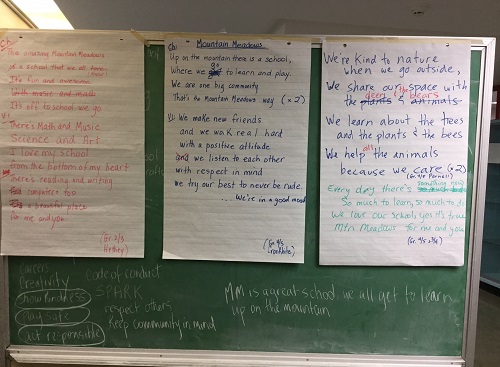 Ch:
The amazing Mountain Meadows
of a school that we all
It's fun and awesome
It's off to school we go
V1:
There's Math and Music
Science and Art
I love my school
from the bottom of my heart
there's reading and writing
computers too
a beautiful place
for me and you.
(Gr. 2/3
Ch:
Mountain Meadows
Up on the mountain there is a school,
Where we go to learn and play.
We are one big community
That's the Mountain Meadows way (x2)
V: We make new friends
and we work real hard
with a positive attitude
and we listen to each other
with respect in mind
we try our best to never be rude.
...We're in a good mood
(Gr. 4/5
We're kind to nature
when we go outside,
We share our space with
deers bears
the plants & animals
We learn about the trees
and the plants & the bees
We help all the animals
because we care (x2)
Every day there's something new
So much to learn, so much to do
We love our school, yes it's true
Mtn. Meadows for me and you
careers
creativity
show kindness
play safe
act responsible
code of conduct
SPARK
respect others
Keep community in mind
MM is a great school, we all get to learn
up on the mountain